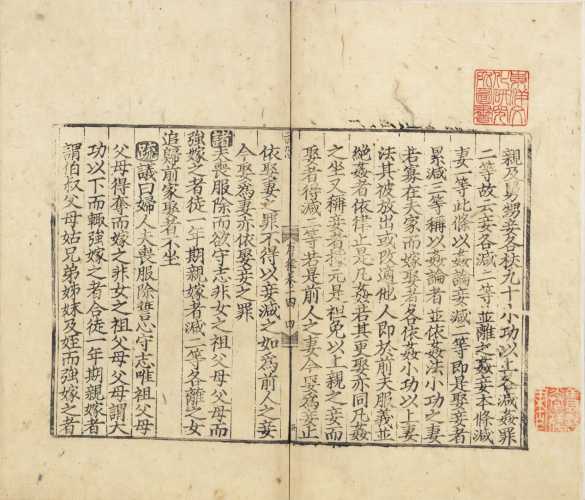 東洋文
化研究
所圖書
親及舅甥妾各杖九十小功以上各減姦罪
二等故云妾各減二等並離之姦妾本條減
妻一等此條以姦論妾減二等即是娶妾者
累減三等稱以姦論者並依姦法小功之妻
若寡在夫家而嫁娶者各依姦小功以上
法其被放出或改適他人即於前夫服義並
絶姦者依律止是凡姦若其更娶亦同凡姦
之坐又稱妾者據元是袒免以上親之妾而
娶者得減二等若是前人之妻今娶爲妾止
依娶妻之罪不得以妾減之如爲前人之妾
今娶爲妻亦依娶妾之罪
諸夫喪服除而欲守志非女之祖父母父母而
強嫁之者徒一年期親嫁者減二等各離之女
追歸前家娶者不坐
疏議曰婦人夫喪服除誓心守志唯祖父母
父母得奪而嫁之非女之祖父母父母謂大
功以下而輒強嫁之者合徒一年期親嫁者
謂伯叔父母姑兄弟姊妹及姪而強嫁之者